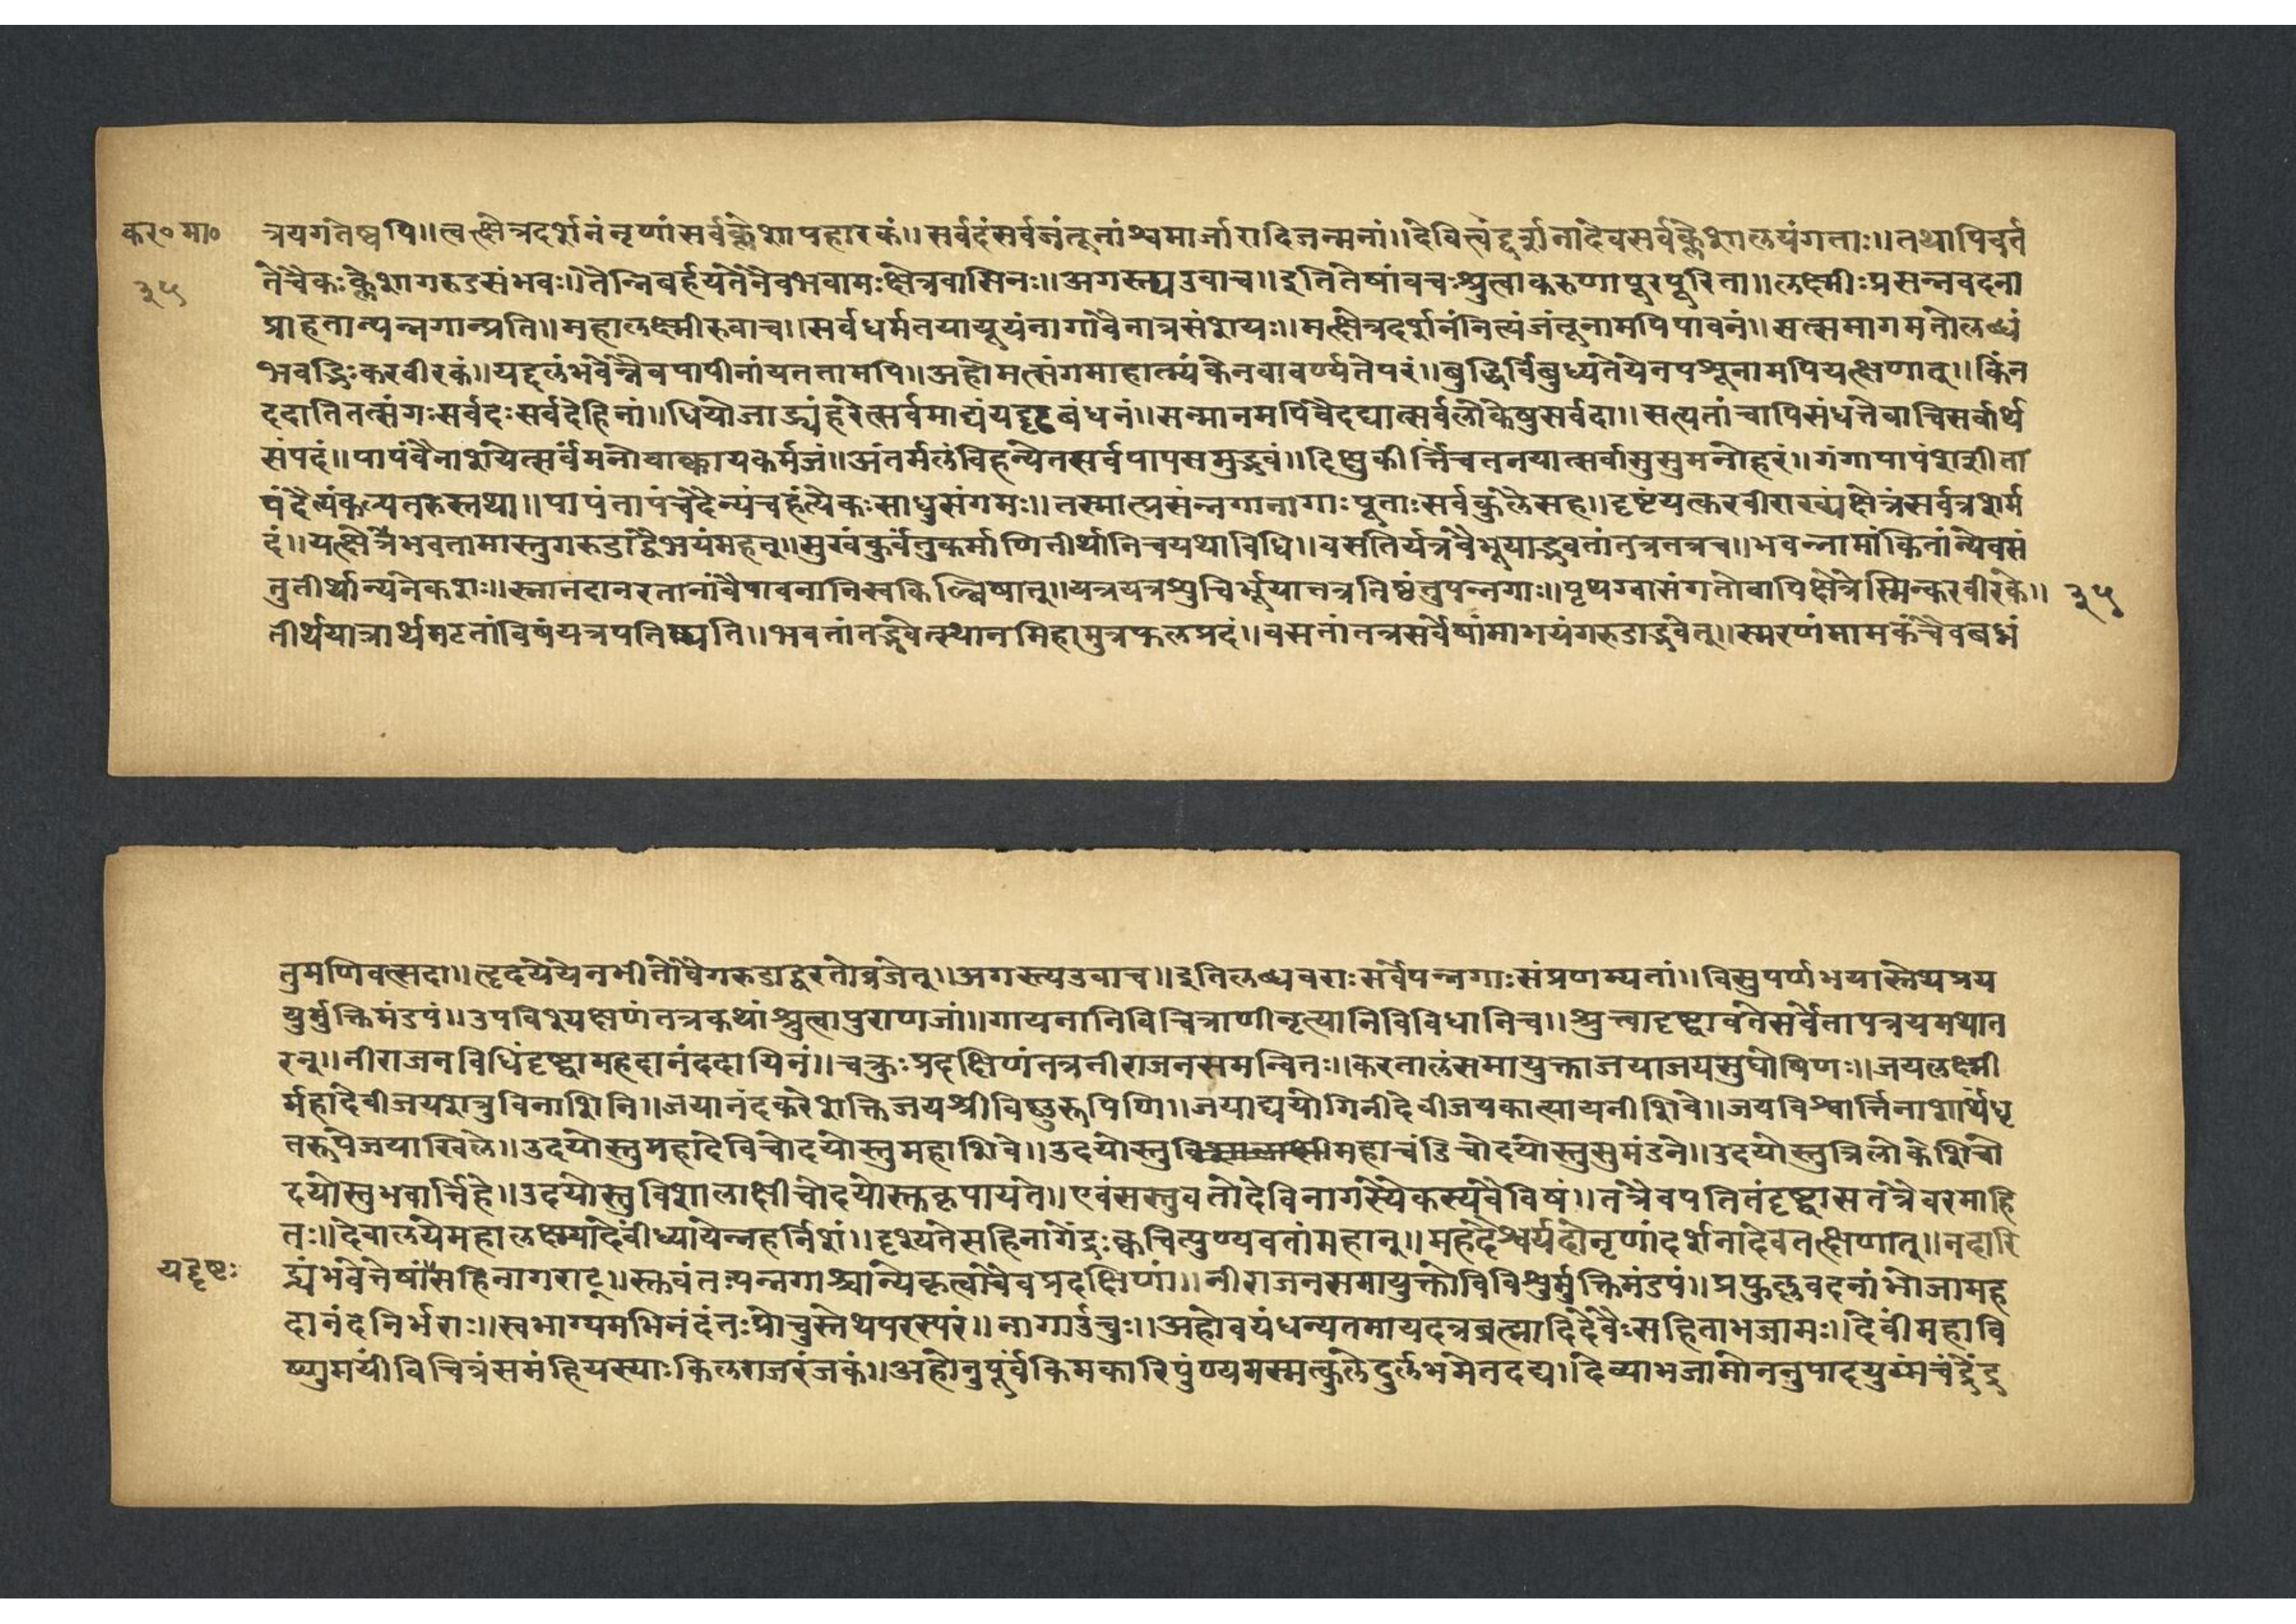 कर० मा०
३५
त्रयगतेष्वपि॥त्वत्क्षेत्रदर्शनंनृणांसर्वक्लेशापहारकं॥सर्वदंसर्वजंतूनांश्वमार्जारादिजन्मनां॥देवित्वद्दर्शनादेवसर्वक्लेशालयंगताः॥तथापिवर्त
तेचैकःक्लेशोगरुडसंभवः॥तंनिबर्हयतेनैवभवामःक्षेत्रवासिनः॥अगस्त्यउवाच॥इतितेषांवचःश्रुत्वाकरुणापूरपूरिता॥लक्ष्मीःप्रसन्नवदना
प्राहतान्पन्नगान्प्रति॥महालक्ष्मीरुवाच॥सर्वधर्मतयायूयंनागावैनात्रसंशयः॥मत्क्षेत्रदर्शनंनित्यंजंतूनामपिपावनं॥सत्समागमतोलब्धं
भवद्भिःकरवीरकं॥यद्दुलंभवेन्नैवपापीनांयततामपि॥अहोमत्संगमाहात्म्यंकेनवावर्ण्यतेपरं॥बुद्धिर्विबुध्यतेयेनपशूनामपियत्क्षणात्॥किंन
ददातितत्संगःसर्वदःसर्वदेहिनां॥धियोजाड्यंहरेत्सर्वमाद्यंयद्दृढबंधनं॥सन्मानमपिवैदद्यात्सर्वलोकेषुसर्वदा॥सत्यतांचापिसंधत्तेवाचिसर्वार्थ
संपदं॥पापंवैनाशयेत्सर्वंमनोवाक्कायकर्मजं॥अंतर्मलंविहन्येतसर्वपापसमुद्भवं॥दिक्षुकीर्त्तिंचतनयात्सर्वासुसुमनोहरं॥गंगापापंशशीता
पंदैन्यंकल्पतरुस्तथा॥पापंतापंचदैन्यंचहंत्येकःसाधुसंगमः॥तस्मात्प्रसंन्नगानागाःपूताःसर्वकुलैसह॥दृष्टंयत्करवीराख्यंक्षेत्रंसर्वत्रशर्म
दं॥यत्क्षेत्रेभवतामास्तुगरुडाद्वैभयंमहत्॥सुखंकुर्वंतुकर्माणितीर्थानिचयथाविधि॥वसतिर्यत्रवैभूयाद्भवतांतत्रतत्रच॥भवन्नामांकितांन्येवसं
तुतीर्थान्यनेकशः॥स्नानदानरतानांवैपावनानिस्वकिल्बिषात्॥यत्रयत्रशुचिर्भूयात्तत्रतिष्ठंतुपन्नगाः॥पृथग्वासंगतोवापिक्षेत्रेस्मिन्करवीरके॥ ३५
तीर्थयात्रार्थमटतांविषंयत्रपतिष्यति॥भवतांतद्भवेत्स्थानमिहामुत्रफलप्रदं॥वसतांतत्रसर्वेषांमाभयंगरुडाद्भवेत्॥स्मरणंमामकंचैवबध्नं
तुमणिवत्सदा॥हृदयेयेनभीतोवैगरुडाद्दूरतोव्रजेत्॥अगस्त्यउवाच॥इतिलब्धवराःसर्वेपन्नगाःसंप्रणम्यतां॥विसुपर्णभयास्तेप्यप्रय
युर्मुक्तिमंडपं॥उपविश्यक्षणंतत्रकथांश्रुत्वापुराणजां॥गायनानिविचित्राणीनृत्यानिविविधानिच॥श्रुत्वादृष्ट्वावतेसर्वेतापत्रयमथात
रन्॥नीराजनविधिंदृष्ट्वामहदानंददायिनं॥चक्रुःप्रदक्षिणंतत्रनीराजनसमन्वितः॥करतालंसमायुक्ताजयाजयसुघोषिणः॥जयलक्ष्मी
र्महादेवीजयशत्रुविनाशिनि॥जयानंदकरेशक्तिजयश्रीविष्णुरूपिणि॥जयाद्ययोगिनीदेवीजयकात्यायनीशिवे॥जयविश्वार्त्तिनाशार्थेधृ
तरूपेजयाखिले॥उदयोस्तुमहादेविचोदयोस्तुमहाशिवे॥उदयोस्तुमहाचंडिचोदयोस्तुसुमंडने॥उदयोस्तुत्रिलोकेशिचो
दयोस्तुभवार्त्तिहे॥उदयोस्तुविशालाक्षीचोदयोस्तकृपायते॥एवंसस्तुवतोदेविनागस्यैकस्यवैविषं॥तत्रैवपतितंदृष्ट्वासतत्रैवरमाहि
तः॥देवालयेमहालक्ष्म्यांदेवींध्यायेन्नहर्निशं॥दृश्यतेसहिनागेंद्रःक्वचित्पुण्यवतांमहान्॥महदैश्वर्यदोनृणांदर्शनादेवतत्क्षणात्॥नदारि
यद्दृष्टः
द्र्यंभवेत्तेषांसहिनागराट्॥स्तवंतःपन्नगाश्चान्येकृत्वाचैवप्रदक्षिणां॥नीराजनसमायुक्तोविविशुर्मुक्तिमंडपं॥प्रफुल्लवदनांभोजामह
दानंदनिर्भराः॥स्वभाग्यमभिनंदंतःप्रोचुस्तेथपरस्परं॥नागाऊचुः॥अहोवयंधन्यतमायदत्रब्रह्मादिदेवैःसहिताभजामः॥देवीमहावि
ष्णुमयींविचित्रंसमंहियस्याःकिलराजरंजकं॥अहोनुपूर्वंकिमकारिपुंण्यमस्मत्कुलेदुर्लभमेतदद्य।देव्याभजामोननुपादयुग्मंचंद्रेंदु